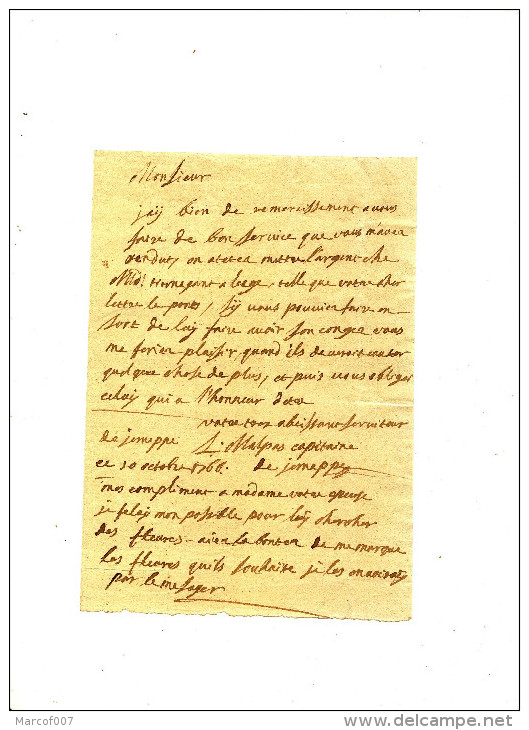 Monsieur
jaÿ bien de remercissement avous
faire de bon service que vous mavez
rendut, on at etea mettre l'argent che
Md! Hornegant a liege, telle que votre cher
lettre le porte, sÿ vous pouviez faire en
sort de laÿ faire avoir son congez vous
me feriez plaisir, quand ils deveroit couter
quelque chose de plus, et puis vous obliger
celuy qui a l'honneur d'etre
votre tres obeissant serviteur
de jemeppe L. Malpas capitaine
ce 10 octobre 1766. de jemeppe
mes compliment a madame votre epouse
je feraÿ mon possible pour luÿ chercher
des fleures - aiez la bontez de me marque
les fleures quils souhaite je les envoiraÿ
par le mesager
Marcof007
www.delcampe.net